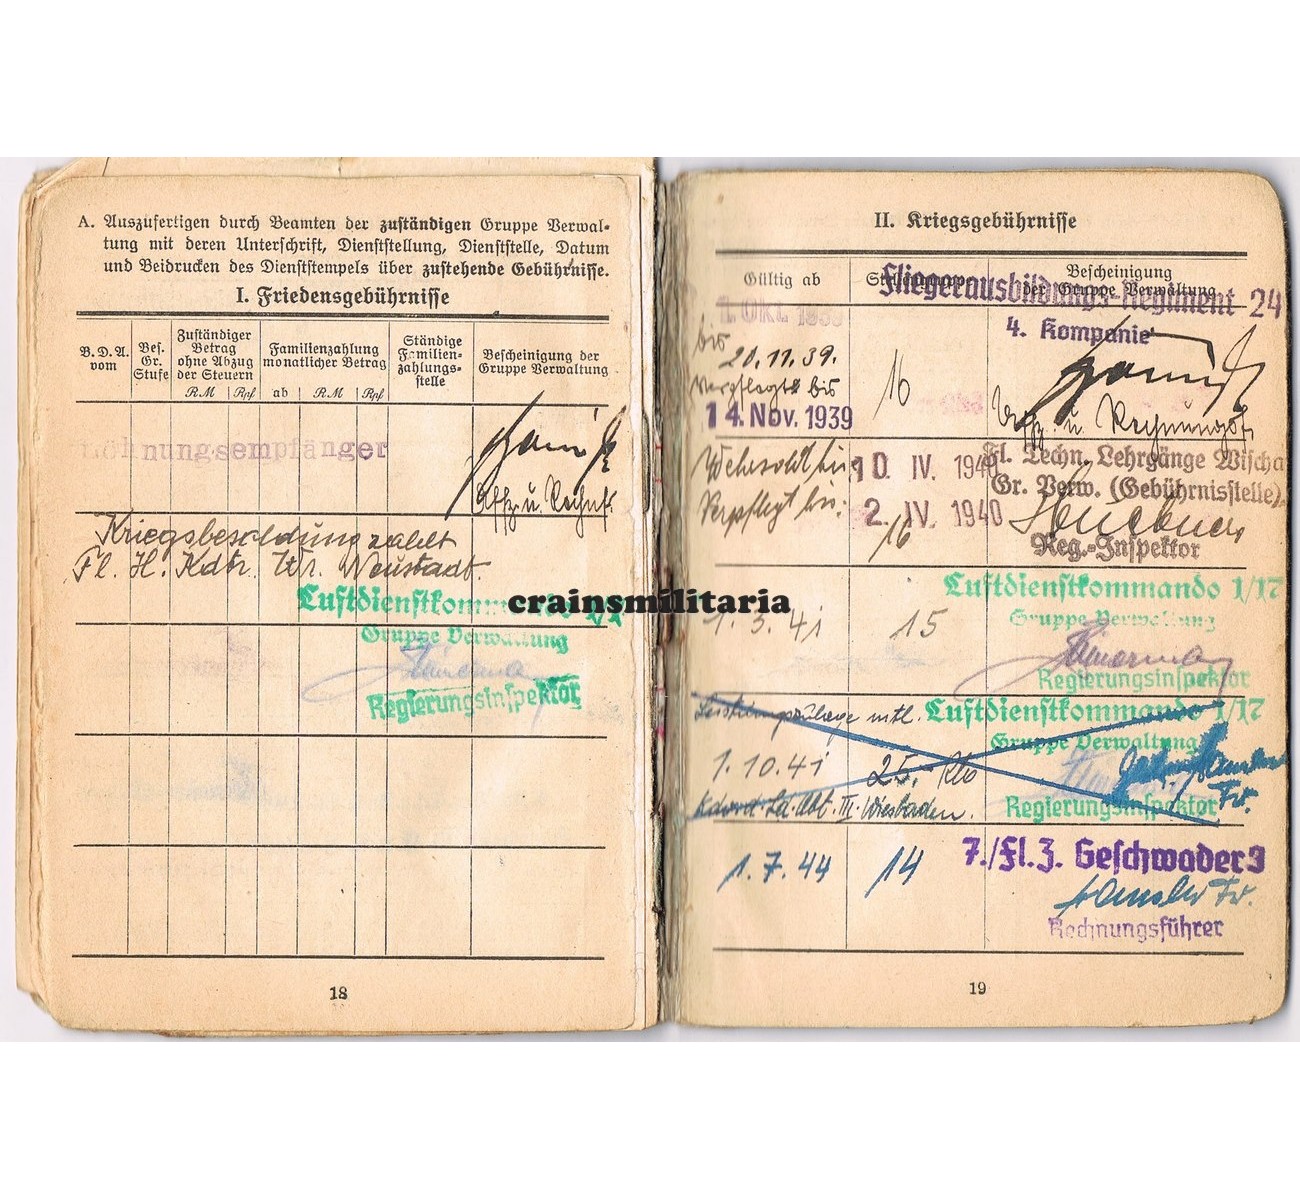 A. Auszufertigen durch Beamten der zuständigen Gruppe Verwal-
tung mit deren Unterschrift, Dienststellung, Dienststelle, Datum
und Beidrucken des Dienststempels über zustehende Gebührnisse.
I. Friedensgebührnisse
B. D. A. vom
Bes. Gr. Stufe
Zuständiger Betrag ohne Abzug der Steuern
RM Rpf
Familienzahlung monatlicher Betrag
ab RM Rpf
Ständige Familien-zahlungs-stelle
Bescheinigung der Gruppe Verwaltung
Löhnungsempfänger
Uffz. u. Rechnf.
Kriegsbesoldung zahlt
Fl. H. Kdtr. Wr. Neustadt.
Luftdienstkommando
Gruppe Verwaltung
Regierungsinspektor
18
crainsmilitaria
II. Kriegsgebührnisse
Gültig ab
Bescheinigung
der Gruppe Verwaltung
Fliegerausbildungs-Regiment 24
4. Kompanie
1. OKT. 1939
bis
20.11.39.
16
Verpflegt bis
14. Nov. 1939
Uffz. u. Rechnungsf.
Wehrsold bis
10. IV. 1940
Fl. Techn. Lehrgänge Wischa
Gr. Verw. (Gebührnisstelle)
Verpflegt bis:
2. IV. 1940
16
Reg.-Inspektor
Luftdienstkommando 1/17
Gruppe Verwaltung
1. 3. 41
15
Regierungsinspektor
mtl.
Luftdienstkommando 1/17
Gruppe Verwaltung
1. 10. 41
25.-
Wiesbaden.
Regierungsinspektor
Fw.
1. 7. 44
14
7./Fl.Z. Geschwader 3
Fw.
Rechnungsführer
19